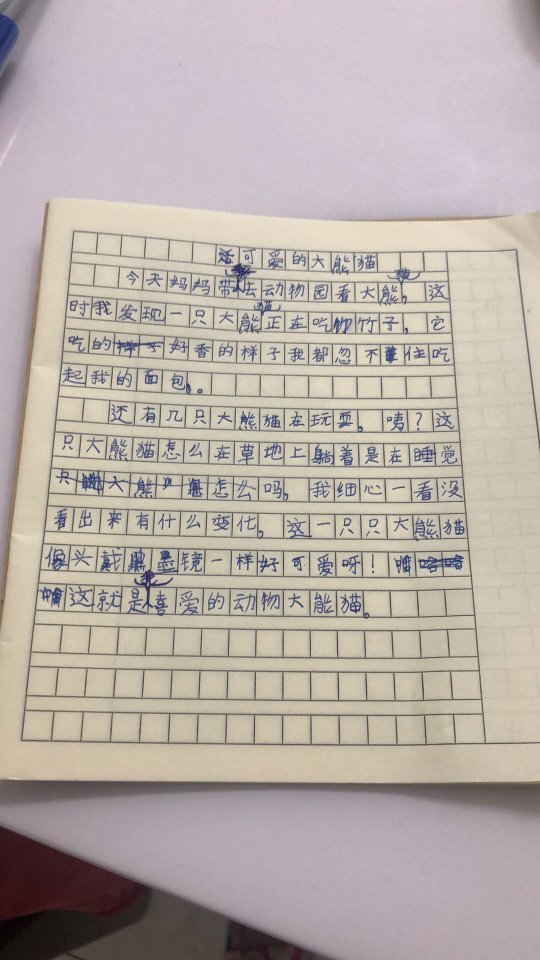 可爱的大熊猫
今天妈妈带我去动物园看大熊猫，这
时我发现一只大熊猫正在吃竹子，它
吃的好香的样子我都忍不住吃
起我的面包。
还有几只大熊猫在玩耍。咦？这
只大熊猫怎么在草地上躺着是在睡觉
怎么吗，我细心一看没
看出来有什么变化，这一只只大熊猫
像头戴墨镜一样好可爱呀！
这就是我喜爱的动物大熊猫。